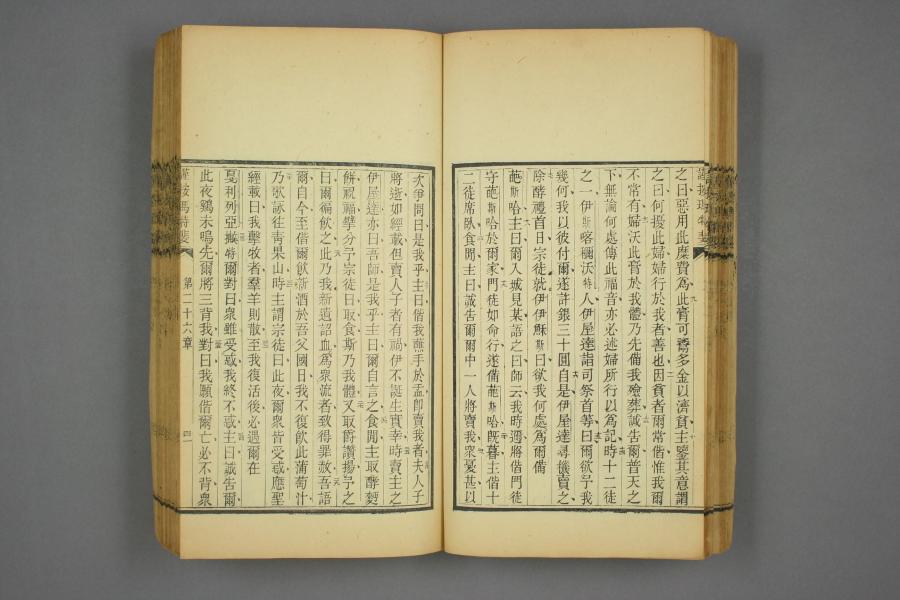 之曰惡用此糜費爲此膏可鬻多金以濟貧主鑒其意謂
之曰何擾此婦婦行於我者善也因貧者爾常偕惟我爾
不常有婦沃此膏於我體乃先備我殮葬誠告爾普天之
下無論何處傳此福音亦必述婦所行以爲記時十二徒
之一伊斯喀穪沃特人伊屋達詣司祭首等曰爾欲予我
幾何我以彼付爾遂許銀三十圓自是伊屋達尋機賣之
除酵禮首日宗徒就伊伊穌斯曰欲我何處爲爾備
葩斯哈主曰爾入城見某語之曰師云我時邇將偕門徒
守葩斯哈於爾家門徒如命行遂備葩斯哈旣暮主偕十
二徒席卧食閒主曰誠告爾爾中一人將賣我衆憂甚以
次伊問曰是我乎主曰偕我蘸手於盂卽賣我者夫人子
將逝如經載但賣人子者有禍伊不誕生實幸時賣主之
伊屋達亦曰吾師是我乎主曰爾自言之食閒主取酵麪
餅祝福擘分予宗徒曰取食斯乃我體又取爵讚揚予之
曰爾徧飲之此乃我新遺詔血爲衆流者致得罪赦吾語
爾自今至偕爾飲新酒於吾父國日我不復飲此葡萄汁
乃歌詠往靑果山時主謂宗徒曰此夜爾衆皆受惑應聖
經載曰我擊牧者羣羊則散至我復活後必過爾在
戞利列亞撇特爾對曰衆雖受惑我終不惑主曰誠告爾
此夜鷄未鳴先爾將三背我對曰我願偕爾亡必不背衆
第二十六章